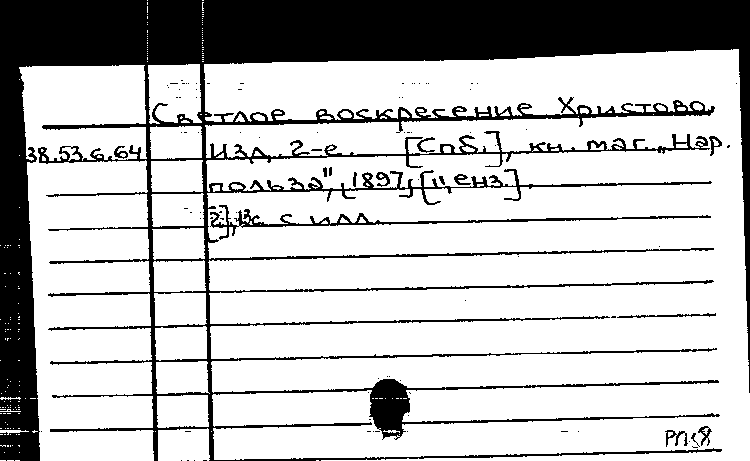 Светлое воскресение Христово.
38.53.6.64 Изд. 2-е. [Спб.], кн. маг. „Нар.
польза", [1897] [ценз.].
[2], 13с. с илл.